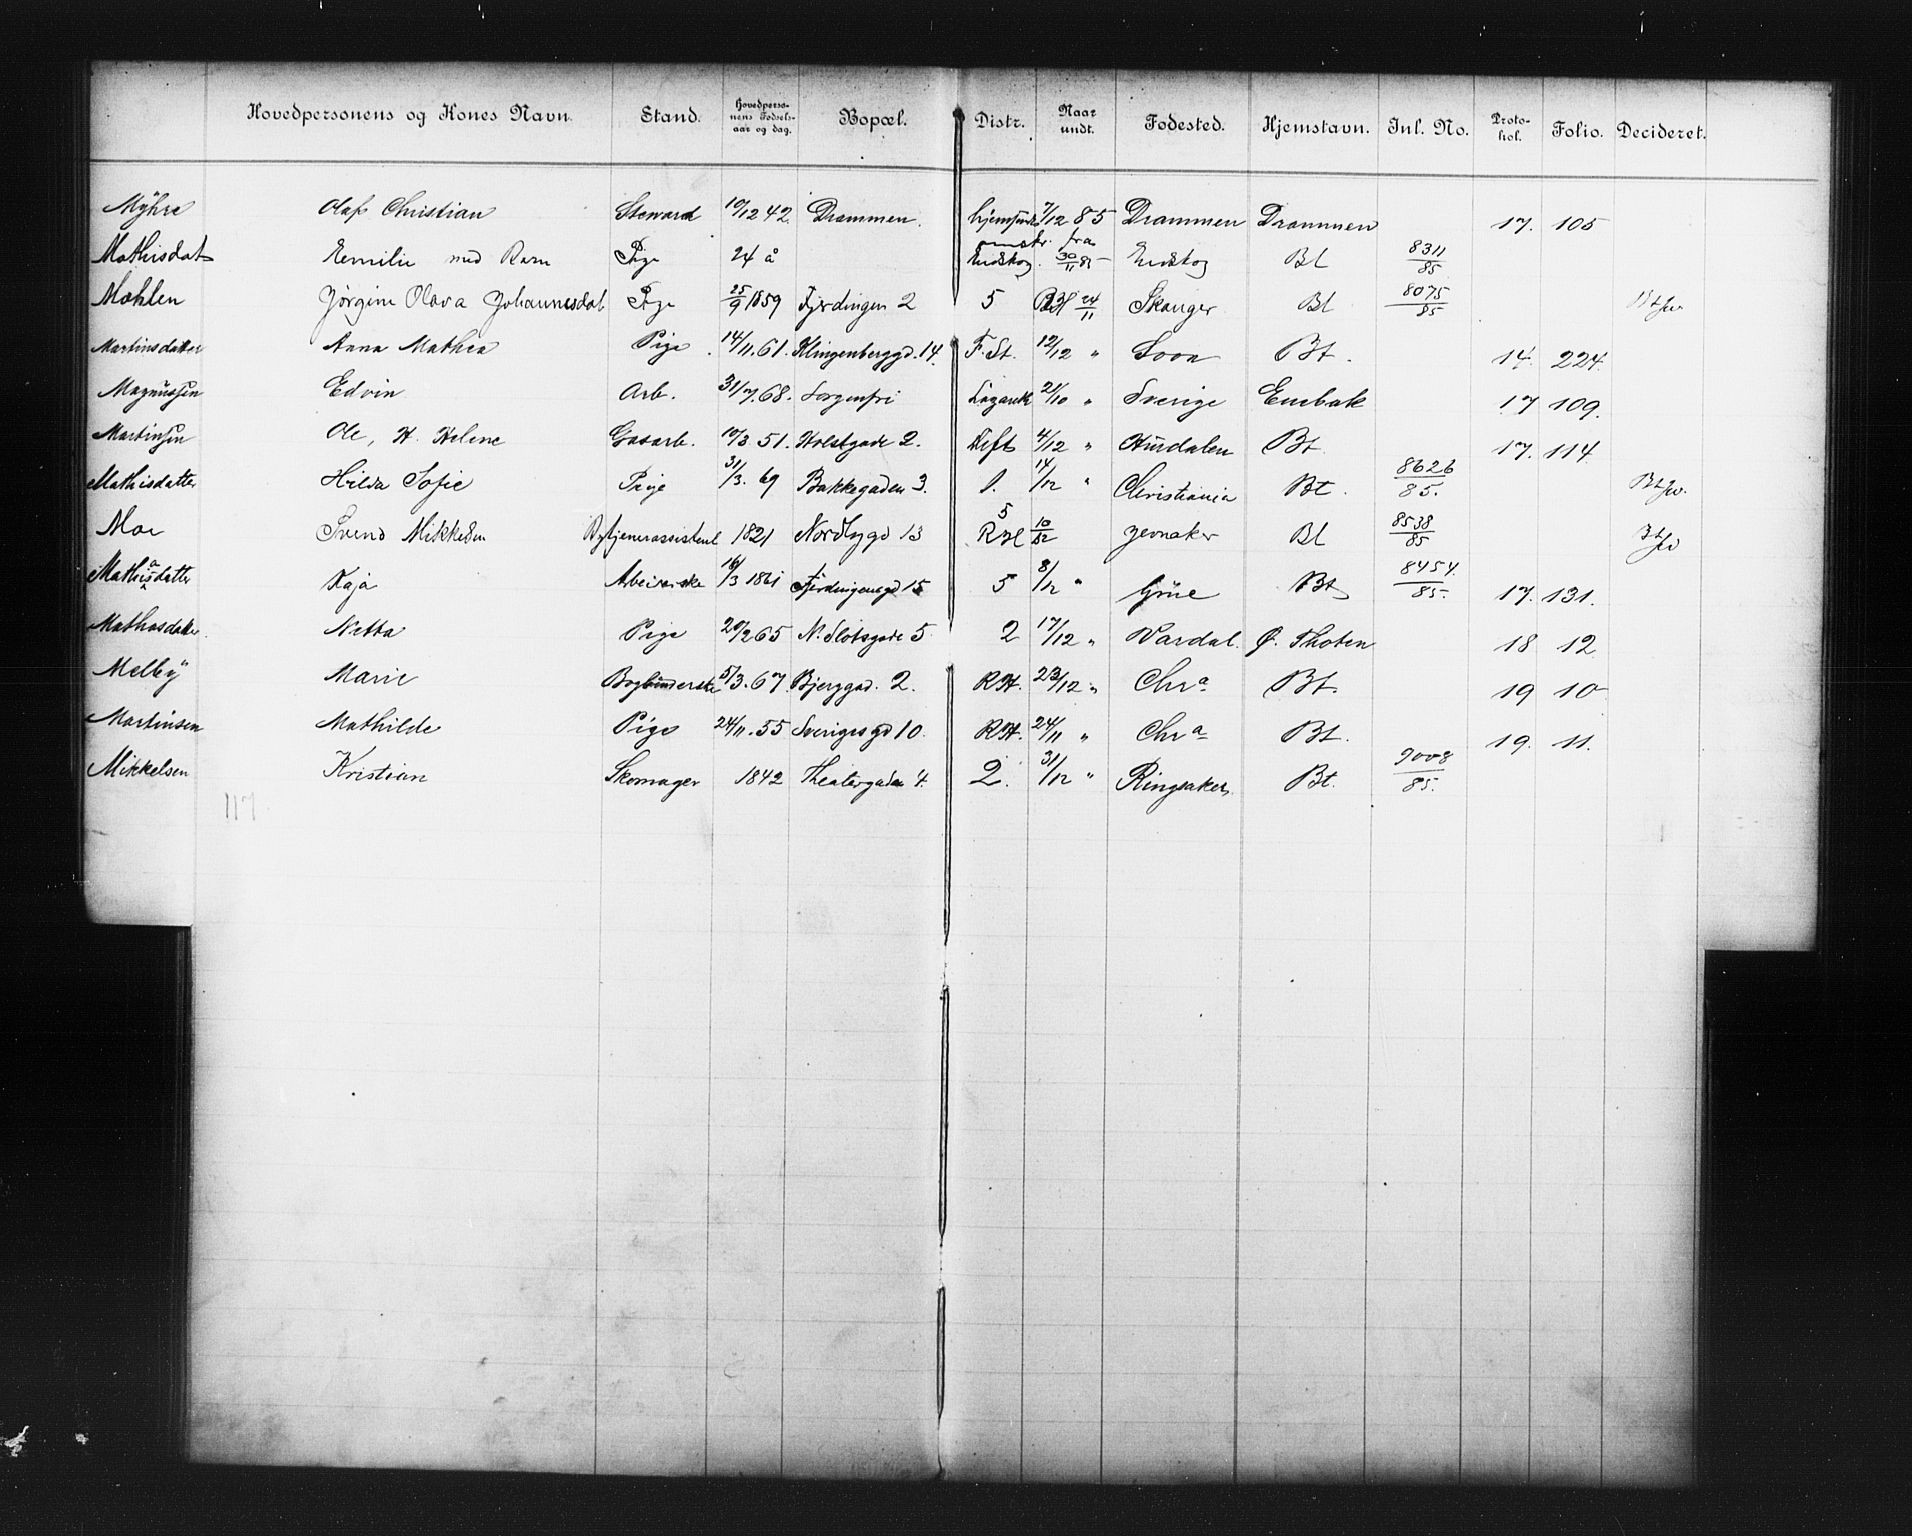 Hovedpersonens og Kones Navn. Stand. Hovedpersonens Fødselsaar og dag. Bopæl. Distr. Naar undt. Fødested. Hjemstavn. Inl. No. Protokol. Folio. Decideret.
Myhre Olaf Christian Steward 10/12 42. Drammen. hjemsendt 7/12 85 Drammen Drammen 17. 105
Mathisdat Emilie med Barn Pige 24 å omstr. fra Eidskog 30/11 85 Eidskog Bt 8311/85
Mohlen Jørgine Olava Johannesdat Pige 25/9 1859 Fjerdingen 2 5 24/11 Skauger Bt 8075/85
Martinsdatter Anna Mathea Pige 14/11.61. Klingenberggd. 14. F. St. 12/12 " Soon Bt. 14. 224.
Magnussen Edvin Arb. 31/7.68. Sorgenfri Lazareth 21/10 " Sverige Enebak 17 109.
Martinsen Ole, H. Helene Gasarb. 10/3 51. Holstgade 2. Stift 4/12 " Hurdalen Bt. 17. 114
Mathisdatter Hilda Sofie Pige 31/3. 69 Bakkegaden 3. 1. 14/12 " Christiania Bt. 8626/85.
Moe Svend Mikkelsen Bytjenerassistent 1821 Nordbygd 13 5 RH 10/12 Jevnaker Bt 8538/85
Mathisdatter a Kaja Arbeiderske 16/3 1861 Fjerdingensgd 15 5 8/12 " Grue Bt 8454/85. 17. 131.
Mathasdatter Netta Pige 20/2 65 N. Slotsgade 5 2 17/12 " Vardal. Ø. Thoten 18 12
Melby Marie Bogbinderske 5/3.67. Bjerggad. 2. RH. 23/12 " Chra Bt. 19 10
Martinsen Mathilde Pige 24/11.55 Sverigesgd 10. RH. 24/11 " Chra Bt. 19. 11.
Mikkelsen Kristian Skomager 1842 Theatergaden 4. 2. 31/12 " Ringsaker. Bt. 9008/85.
117